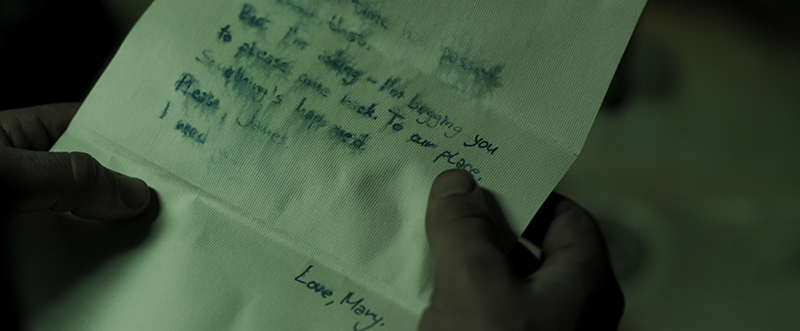 But I'm asking - I'm begging you
to please come back. To our place.
Something's happened.
Please, James
I need
Love, Mary.